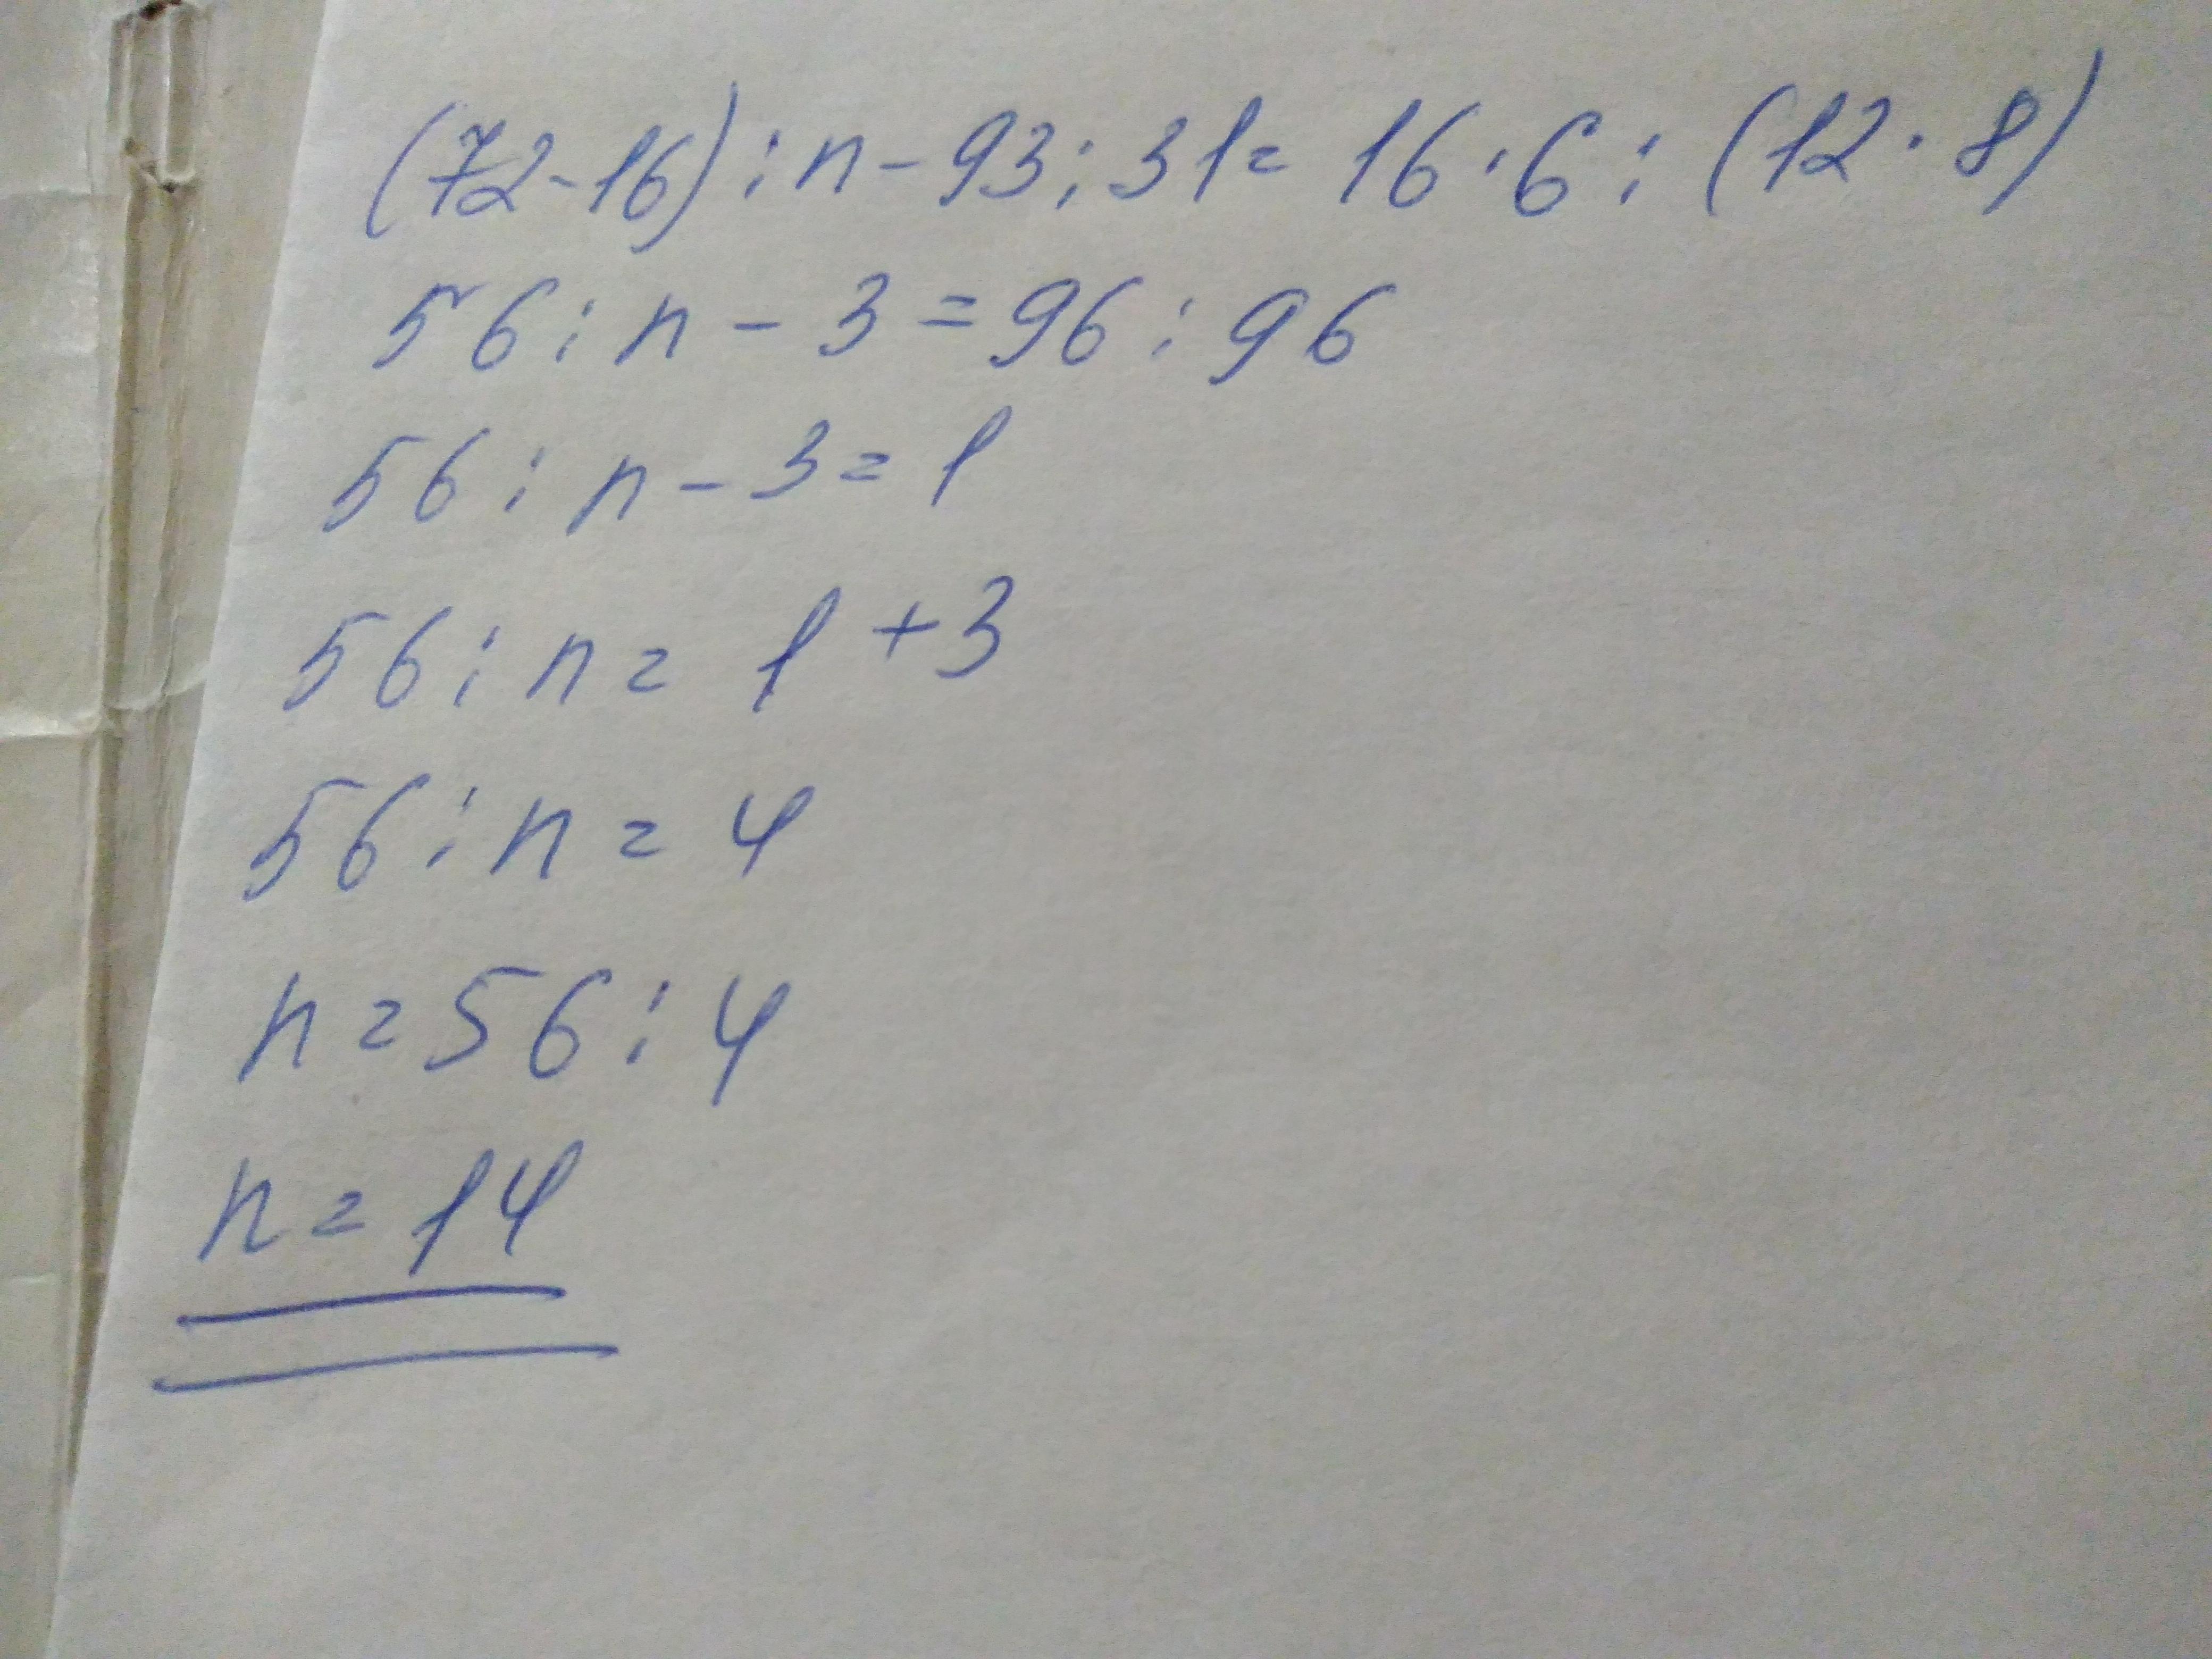 (72-16):n-93:31=16·6:(12·8)
56:n-3=96:96
56:n-3=1
56:n=1+3
56:n=4
n=56:4
n=14